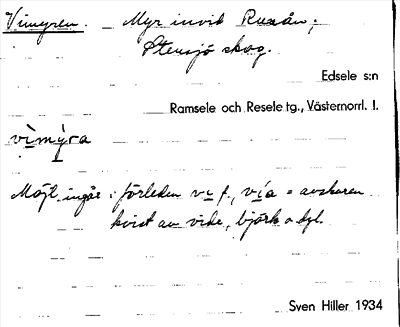 Vimyren. Myr invid Ruskån;
Stensjö skog.
Edsele s:n
Ramsele och Resele tg., Västernorrl. l.
vìmýra
Möjl. ingår i förleden vi f., vía = avskuren
kvist av vide, björk o dyl.
Sven Hiller 1934